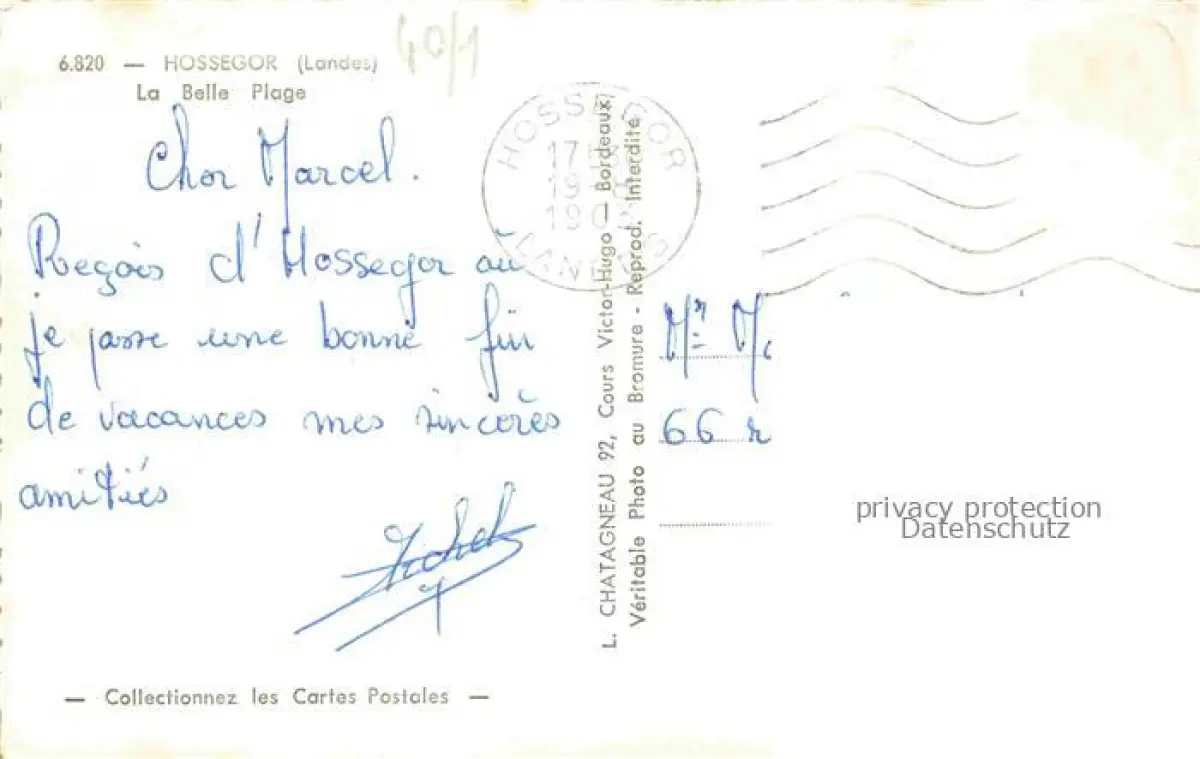 6.820 — HOSSEGOR (Landes)
La Belle Plage
40/1
Cher Marcel.
Reçois d'Hossegor où
je passe une bonne fin
de vacances mes sincères
amitiés
— Collectionnez les Cartes Postales —
L. CHATAGNEAU 92, Cours Victor-Hugo — Bordeaux
Véritable Photo au Bromure - Reprod. Interdite
HOSSEGOR
17
LANDES
Mr M
66 r
privacy protection
Datenschutz